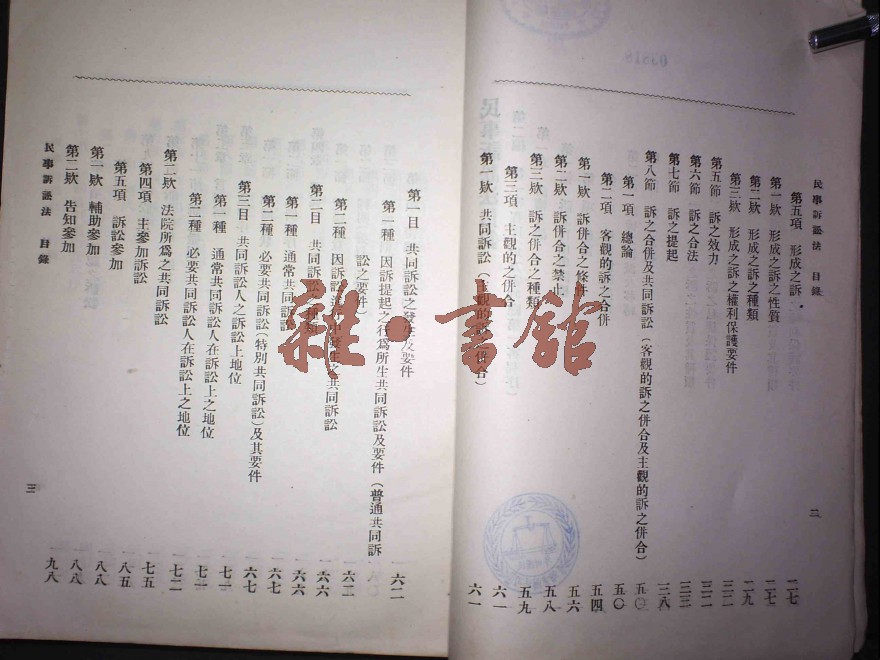 民事訴訟法　目錄
第五項　形成之訴　二七
第一欵　形成之訴之性質　二七
第二欵　形成之訴之種類　二九
第三欵　形成之訴之權利保護要件　三二
第五節　訴之效力　三二
第六節　訴之合法　三三
第七節　訴之提起　三八
第八節　訴之合併及共同訴訟（客觀的訴之併合及主觀的訴之併合）　五〇
第一項　總論　五〇
第二項　客觀的訴之併合　五四
第一欵　訴併合之條件　五六
第二欵　訴併合之禁止　五八
第三欵　訴之併合之種類　五九
第三項　主觀的之併合　六一
第一欵　共同訴訟（主觀的訴之併合）　六一
二
第一目　共同訴訟之發生及要件　六二
第一種　因訴提起之行爲所生共同訴訟及要件（普通共同訴
訟之要件）
第二種　因訴訟進行中發生之共同訴訟　六二
第二目　共同訴訟之種類　六六
第一種　通常共同訴訟　六六
第二種　必要共同訴訟（特別共同訴訟）及其要件　六七
第三目　共同訴訟人之訴訟上地位　六七
第一種　通常共同訴訟人在訴訟上之地位　七一
第二種　必要共同訴訟人在訴訟上之地位
第二欵　法院所爲之共同訴訟　七二
第四項　主參加訴訟　七五
第五項　訴訟參加　八五
第一欵　輔助參加　八八
第二欵　告知參加　九八
民事訴訟法　目錄
三
雜·書館